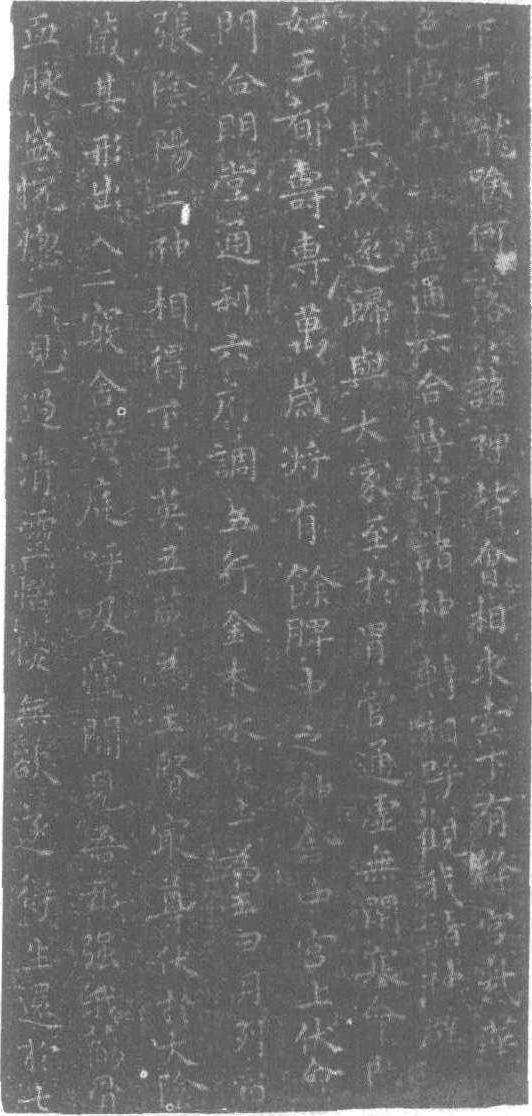 下于龍喉何落落諸神皆會相求索下有絳宮紫華
色隱在華蓋通六合專守諸神轉相呼觀我諸神辟
除耶其成還歸與大家至於胃管通虛無閉塞命門
如玉都壽專萬歲將有餘脾中之神舍中宮上伏命
門合明堂通利六府調五行金木水火土為王日月列宿
張陰陽二神相得下玉英五藏為主腎最尊伏於大陰
藏其形出入二竅舍黃庭呼吸廬間見吾形強我筋骨
血脉盛怳惚不見過清靈恬惔無欲遂得生還於七